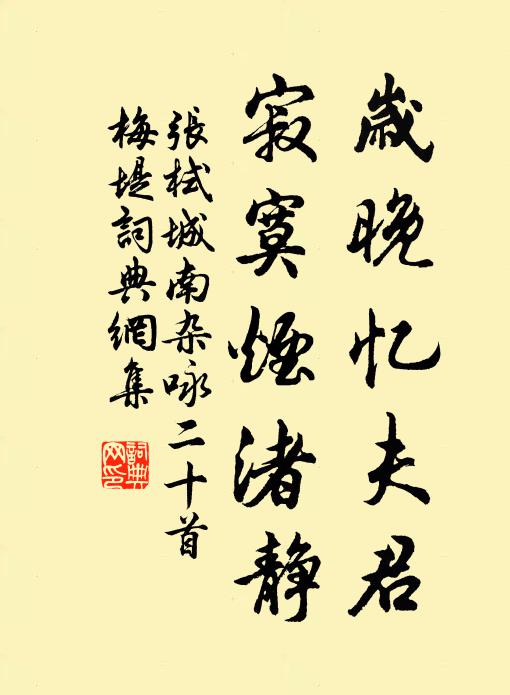 岁晚忆夫君
寂寞烟渚静
张栻城南杂咏二十首
梅堤词典網集
詞典
网印